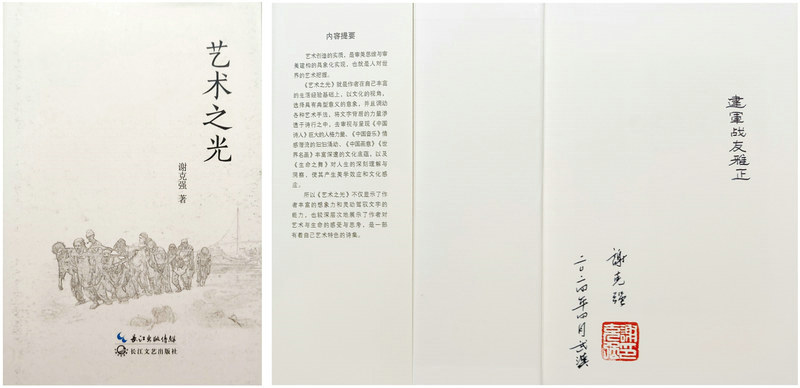 艺术之光
谢克强 著
长江出版传媒
长江文艺出版社
内容提要
艺术创造的实质，是审美思维与审
美建构的具象化实现，也就是人对世
界的艺术把握。
《艺术之光》就是作者在自己丰富
的生活经验基础上，以文化的视角，
选择具有典型意义的意象，并且调动
各种艺术手法，将文字背后的力量渗
透于诗行之中，去审视与呈现《中国
诗人》巨大的人格力量、《中国音乐》情
感潜流的汩汩涌动、《中国画意》《世
界名画》丰富深邃的文化底蕴，以及
《生命之舞》对人生的深刻理解与
洞察，使其产生美学效应和文化感
应。
所以《艺术之光》不仅显示了作
者丰富的想象力和灵动驾驭文字的
能力，也较深层次地展示了作者对
艺术与生命的感受与思考，是一部
有着自己艺术特色的诗集。
建军战友雅正
谢克强
二〇二四年四月 武汉